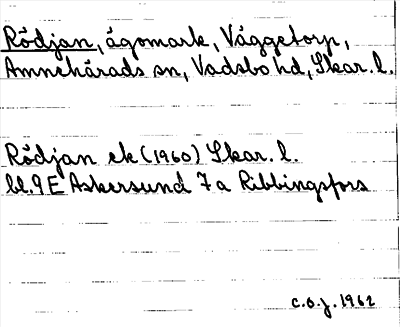 Rödjan, ägomark, Våggetorp,
Amnehärads sn, Vadsbo hd, Skar. l.
Rödjan ek (1960) Skar. l.
bl. 9 E Askersund 7 a Ribbingsfors
c.o.j. 1962